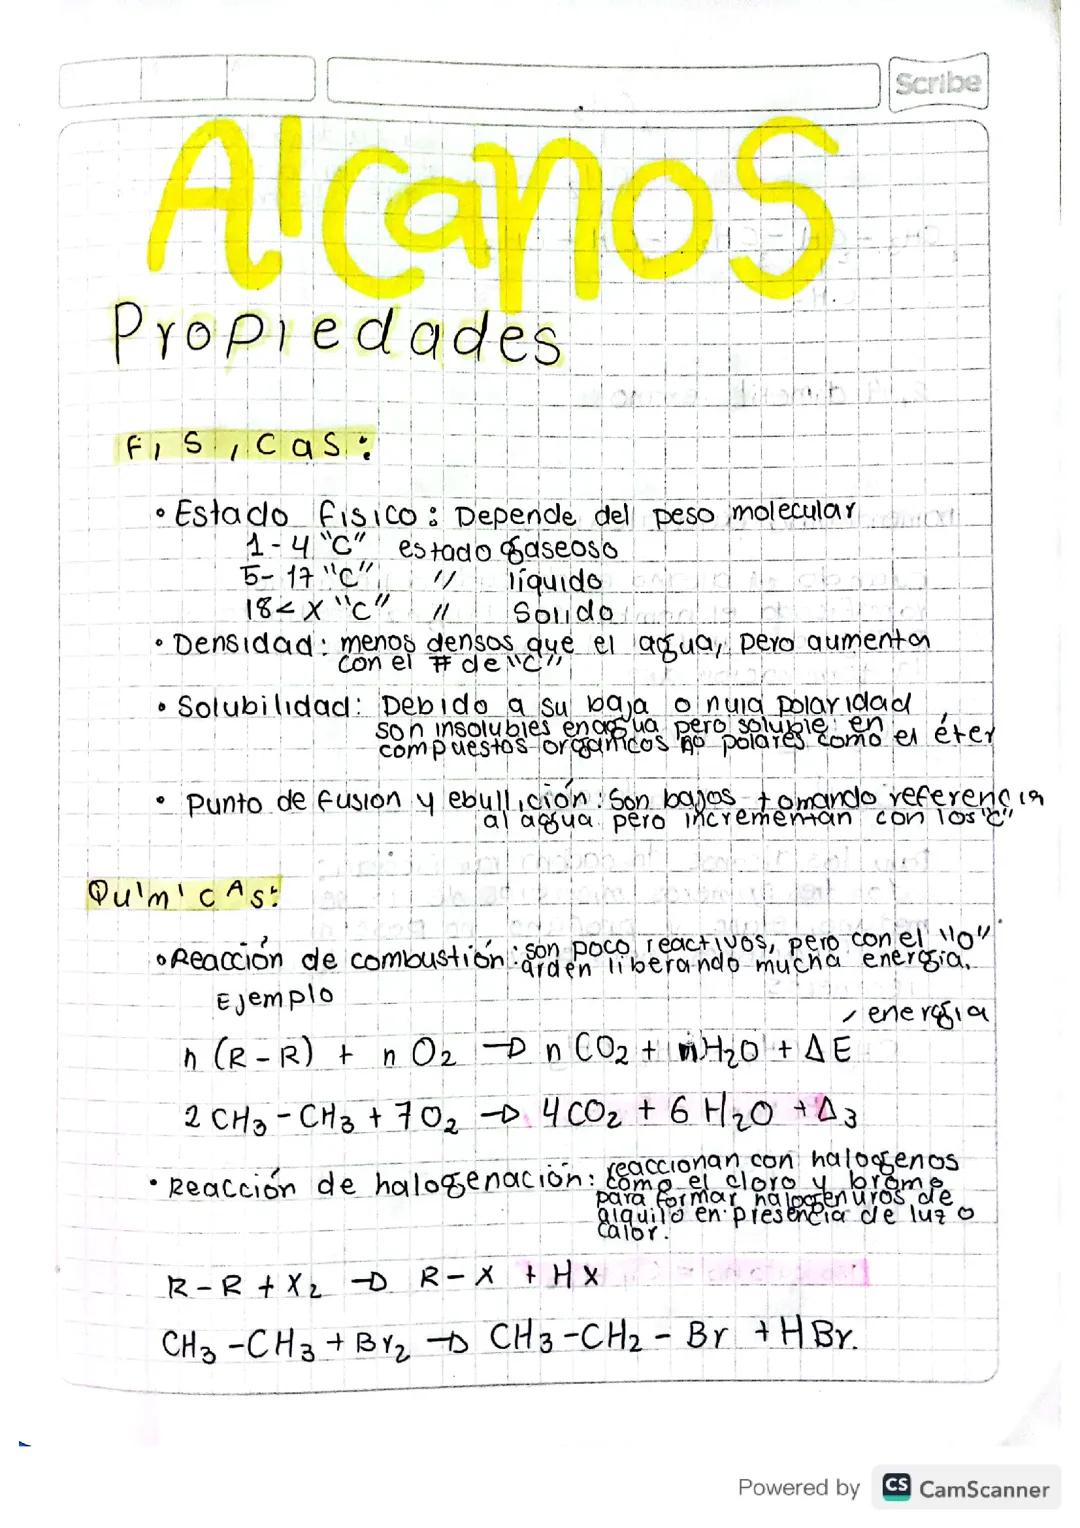 Scribe
Alcanos
Propiedades
Físicas:
• Estado físico: Depende del peso molecular
1-4 "C" estado gaseoso
5-17 "C" // líquido
18< X "C" // Solido
• Densidad: menos densos que el agua, pero aumenta
con el # de "C"
• Solubilidad: Debido a su baja o nula polaridad
son insolubles en agua pero soluble en
compuestos organicos no polares como el éter
• Punto de fusion y ebullición: Son bajos tomando referencia
al agua pero incrementan con los "C"
Químicas:
• Reacción de combustión: son poco reactivos, pero con el "O"
arden liberando mucha energía.
Ejemplo
energía
n (R-R) + n O2 → n CO2 + n H2O + ΔE
2 CH3 - CH3 + 7 O2 → 4 CO2 + 6 H2O + Δ3
• Reacción de halogenación: reaccionan con halogenos
como el cloro y bromo
para formar halogenuros de
alquilo en presencia de luz o
calor.
R-R + X2 → R-X + HX
CH3 -CH3 + Br2 → CH3 -CH2 - Br + HBr.
Powered by CS CamScanner